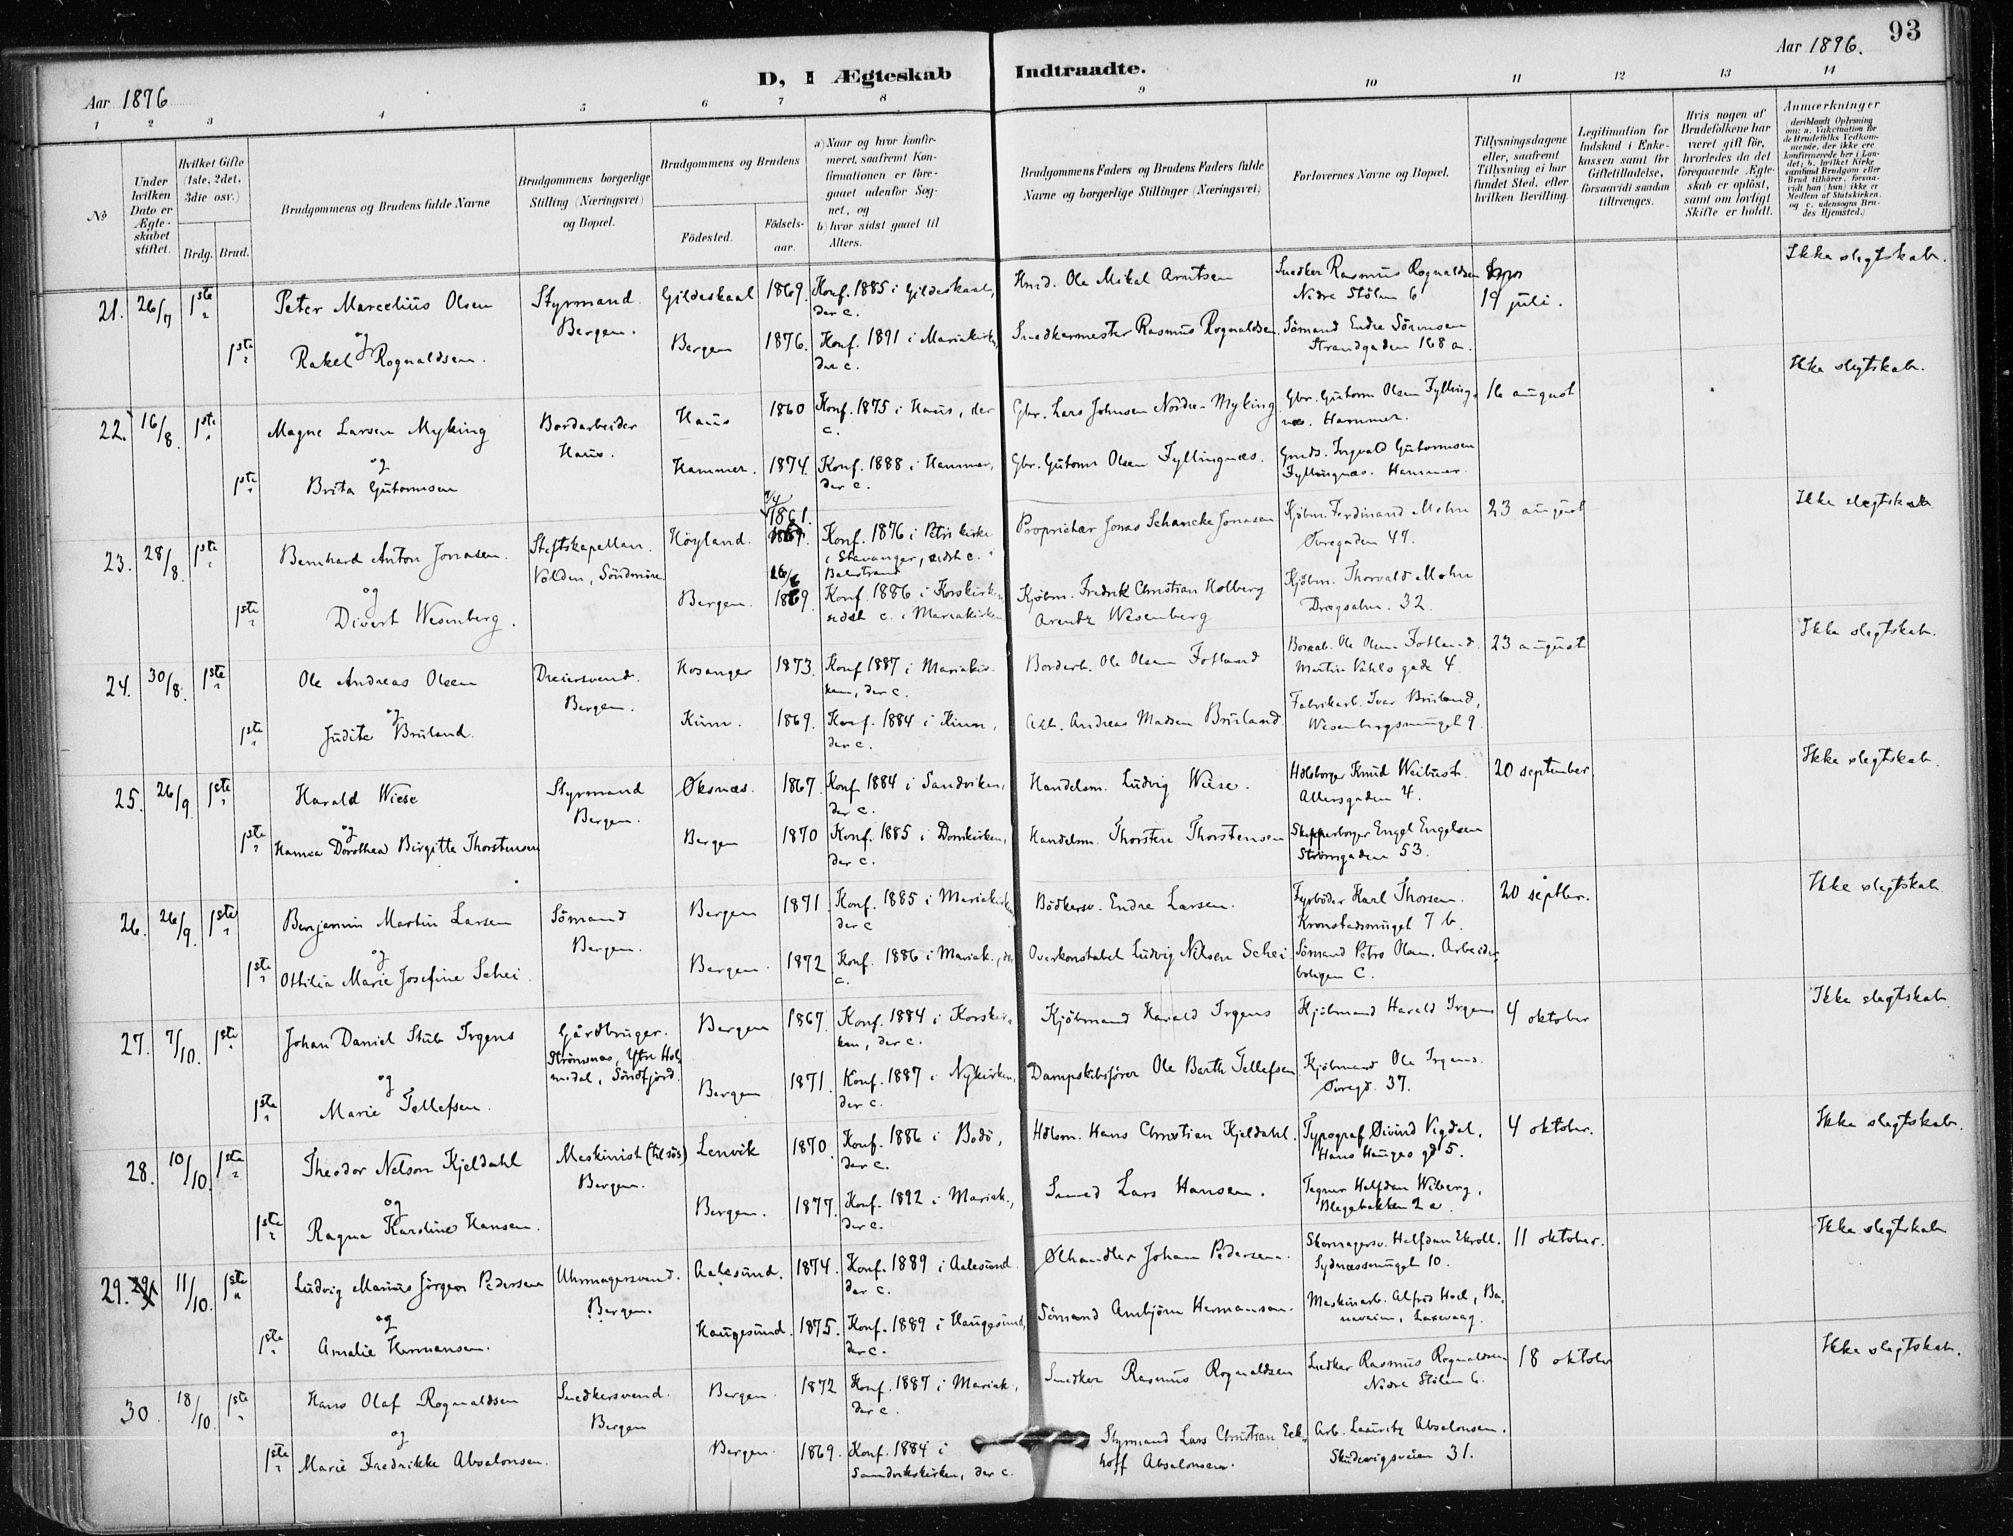 93
Aar 1896.
Aar 1896
D, I Ægteskab Indtraadte.
1 2 3 4 5 6 7 8 9 10 11 12 13 14
No
Under hvilken Dato er Ægteskabet stiftet.
Hvilket Gifte (1ste, 2det, 3die osv.)
Brdg. Brud.
Brudgommens og Brudens fulde Navne
Brudgommens borgerlige Stilling (Næringsvei) og Bopæl.
Brudgommens og Brudens
Fødested.
Fødselsaar.
a) Naar og hvor konfirmeret, saafremt Konfirmationen er foregaaet udenfor Sognet, og
b) hvor sidst gaaet til Alters.
Brudgommens Faders og Brudens Faders fulde Navne og borgerlige Stillinger (Næringsvei)
Forlovernes Navne og Bopæl.
Tillysningsdagene eller, saafremt Tillysning ei har fundet Sted, efter hvilken Bevilling.
Legitimation for Indskud i Enkekassen samt for Giftetilladelse, forsaavidt saadan tiltrænges.
Hvis nogen af Brudefolkene har været gift før, hvorledes da det foregaaende Ægteskab er opløst, samt om lovligt Skifte er holdt.
Anmærkninger (deriblandt Oplysning om: a. Vakcination for de Brudefolks Vedkommende, der ikke ere konfirmerede her i Landet; b. hvilket Kirkesamfund Brudgom eller Brud tilhører, forsaavidt han (hun) ikke er Medlem af Statskirken, og c. udensogns Brudes Hjemsted.)
21. 26/7 1ste Peter Marcelius Olsen Styrmand Bergen. Gildeskaal 1869. Konf. 1885 i Gildeskaal, der c. Ole Mikal Arntsen Snedker Rasmus Rognaldsen Nedre Stølen 6 19 juli. Ikke slegtskab.
og
1ste Rakel Rognaldsen. Bergen 1876. Konf. 1891 i Mariakirk, der c. Snedkermester Rasmus Rognaldsen. Sømand Endre Sørensen Strandgaden 168 a.
22. 16/8. 1ste Magne Larsen Myking Bordarbeider Haus. Haus 1860 Konf. 1875 i Haus, der c. Gbr. Lars Johnsen Nordre-Myking Gbr. Guttorm Olsen Fyllingsnæs. Hammer. 16 august Ikke slegtskab.
og
1ste Brita Guttormsen Hammer. 1874. Konf. 1888 i Hammer, der c. Gbr. Guttorm Olsen Fyllingnæs. Ingvald Guttormsen Fyllingnæs. Hammer.
23. 28/8. 1ste Bernhard Anton Jonasen. Stiftskapellan. Volden, Søndmøre Høyland. 1861. Konf. 1876 i Petri kirke i Stavanger, sidst c. i Balestrand Proprietær Jonas Schancke Jonasen Kjøbm. Ferdinand Mohn Øvregaden 47. 23 august Ikke slegtskab
og
1ste Divert Wesenberg. Bergen. 26/6 1869. Konf. 1886 i Korskirken sidst c. i Mariakirken Kjøbm. Fredrik Christian Holberg Arentz Wesenberg Kjøbm. Thorvald Mohn Dregsalm. 32.
24. 30/8. 1ste Ole Andreas Olsen Dreiersvend. Bergen. Hosanger 1873. Konf 1887 i Mariakirken, der c. Bordarb. Ole Olsen Fotland Bordarb. Ole Olsen Fotland. Martin Vahls gade 4. 23 august Ikke slegtskab.
og
1ste Judite Bruland. Kinn. 1869. Konf. 1884 i Kinn, der c. Arb. Andreas Madsen Bruland Fabrikarb. Ivar Bruland, Wesenbergsmuget 9.
25. 26/9. 1ste Harald Wiese Styrmand Bergen. Øksnæs. 1867. Konf. 1884 i Sandviken, der c. Handelsm. Ludvig Wiese. Hdlsborger Knud Weibust Allersgaden 4. 20 september. Ikke slegtskab.
og
1ste Hansea Dorothea Birgitte Thorstensen Bergen 1870 Konf. 1885 i Domkirken, der c. Handelsm. Thorsten Thorstensen Skipperborger Engel Engelsen Strømgaden 53.
26. 26/9. 1ste Benjamin Martin Larsen Sømand Bergen. Bergen 1871. Konf. 1885 i Mariakirken der c Bødkersv. Endre Larsen. Fyrbøder Karl Thorsen. Kronstadsmuget 7 b. 20 septbr. Ikke slegtskab.
og
1ste Ottilia Marie Josefine Schei. Bergen. 1872 Konf. 1886 i Mariak., der c. Overkonstabel Ludvig Nilsen Schei Sømand Petro Olsen. Arbeiderboligen C.
27. 7/10. 1ste Johan Daniel Stub Irgens Gårdbruger. Strømsnæs, Ytre Holmedal, Søndfjord. Bergen 1867. Konf. 1884 i Korskirken, der c. Kjøbmand Harald Irgens Kjøbmand Harald Irgens 4 oktober Ikke slegtskab.
og
1ste Marie Tellefsen. Bergen 1871. Konf. 1887 i Nykirken, der c. Dampskibsfører Ole Barth Tellefsen. Kjøbmand Ole Irgens. Øvregd. 37.
28. 10/10. 1ste Theodor Nelson Kjeldahl Maskinist (tilsøs) Bergen. Lenvik 1870. Konf. 1886 i Bodø, der c. Hdlsm. Hans Christian Kjeldahl. Typograf Øivind Vigdal, Hans Hauges gd 5. 4 oktober. Ikke slegtskab.
og
1ste Ragna Karoline Hansen. Bergen. 1877. Konf. 1892 i Mariak., der c. Smed Lars Hansen. Tegner Halfdan Wiberg, Blegebakken 2 a.
29. 11/10. 1ste Ludvig Marius Jørgen Pedersen Uhrmagersvend. Bergen. Aalesund. 1874. Konf. 1889 i Aalesund. der c. Ølhandler Johan Pedersen. Skomagersv. Halfdan Ekroll. Sydnæssmuget 10. 11 oktober. Ikke slegtskab
og
1ste Amalie Hermansen. Haugesund. 1875. Konf. 1889 i Haugesund, der c. Sømand Arnbjørn Hermansen. Maskinarb. Alfred Hoel, Laxevaag.
30 18/10. 1ste Hans Olaf Rognaldsen Snedkersvend. Bergen Bergen. 1872 Konf. 1887 i Mariak., der c. Snedker Rasmus Rognaldsen Snedker Rasmus Rognaldsen Nedre Stølen 6. 18 oktober Ikke slegtskab.
og
1ste Marie Fredrikke Absalonsen. Bergen. 1869. Konf. 1884 i Sandvikskirken, der c. Styrmand Lars Christian Eckhoff Absalonsen. Arb. Lauritz Absalonsen. Skudevigsveien 31.